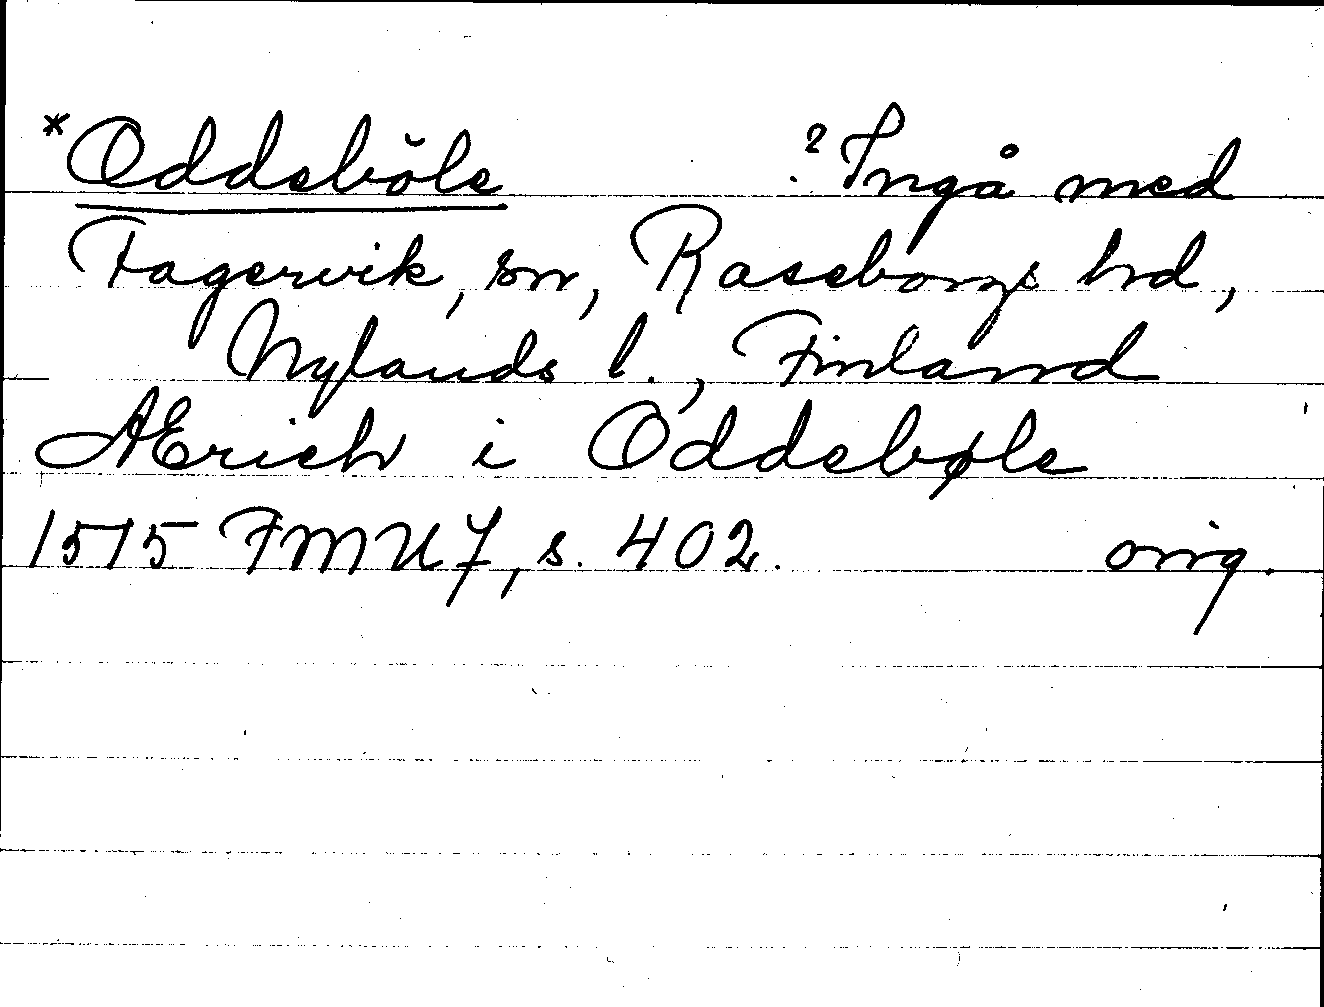 *Oddsböle ?Ingå med
Fagervik, sn, Raseborgs hd,
Nylands l., Finland
AErich i Oddsbøle
1515 FMU 7, s. 402. orig.